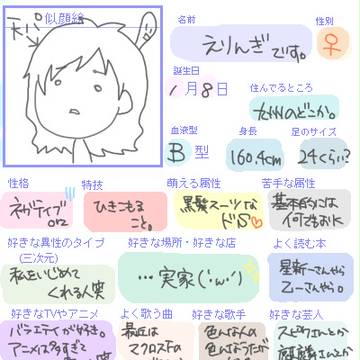 似顔絵
天パ
名前
えりんぎです。
性別
♀
誕生日
1月8日
住んでるところ
九州のどこか。
血液型
B型
身長
160.4cm
足のサイズ
24くらい?
性格
ネガティブorz
特技
ひきこもる
こと。
萌える属性
黒髪スーツな
ドS♡
苦手な属性
基本的には
何でもおk
好きな異性のタイプ
(三次元)
私をいじめて
くれる人笑
好きな場所・好きな店
…実家('・ω・`)
よく読む本
星新一さんやら
乙一さやら。
好きなTVやアニメ
バラエティが好き。
アニメは多すぎて
よく歌う曲
最近は
マクロスFの
好きな歌手
色んな人の
色んなうたが
好きな芸人
スピワさんとか
麒麟さんとか